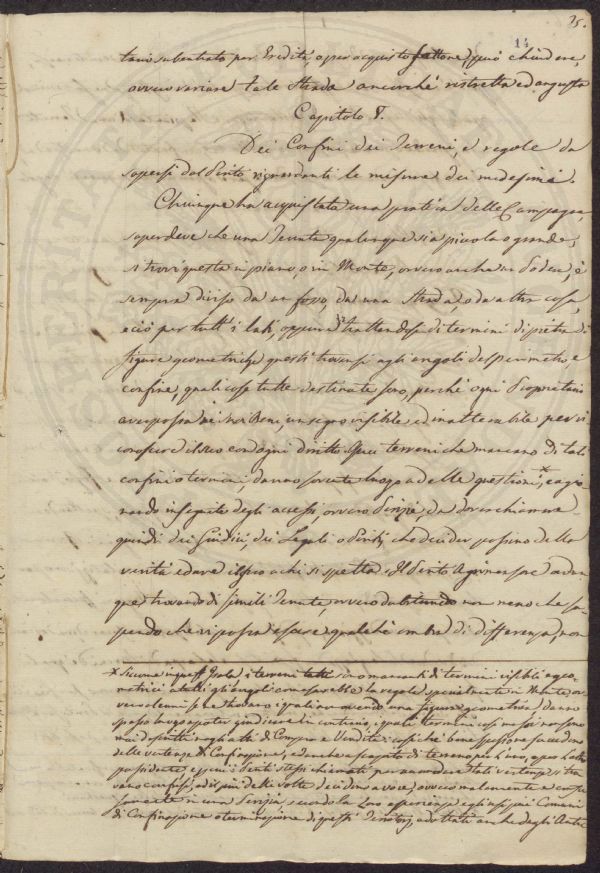 25.
14
tario subentrato per Eredità, o per acquisto fattone, può chiudere,
ovvero variare tale Strada ancorchè ristretta ed angusta
Capitolo V.
Dei Confini dei Terreni, e regole da
sapersi dal Perito riguardanti le misure dei medesimi.
Chiunque ha acquistata una pratica delle Campagne,
saper deve che una Tenuta qualunque sia piccola o grande,
si trovi questa in piano, o in Monte, ovvero anche un Podere, è
sempre diviso da un fosso, da una Strada, o da altre cose,
e ciò per tutti i lati, oppure trattandosi di termini di pietra di
figure geometriche questi trovansi agli angoli del perimetro, e
confine, quali cose tutte destinate sono, perchè ogni Proprietario
aver possa nei suoi Beni, un segno visibile ed inalterabile per ri
conoscere il suo con ogni diritto. Quei terreni che mancano di tali
confini o termini danno sovente luogo a delle questioni,* cagio
nando in seguito degli accessi, ovvero Perizie, da dover chiamare
quindi dei Giudici, dei Legali o Periti, che decider possino della
verità e dare il suo a chi si spetta. Il Perito Agrimensore adun
que, trovando di simili Tenute, ovvero dubitando non meno che sa
pendo che vi possa essere qualche ombra di differenza, non
* Siccome in quest' Isola i terreni tutti sono mancanti di termini visibili e geo
metrici a tutti gli angoli come sarebbe la regola specialmente in Monte, ov
vero alcuni se ne trovano i quali non avendo una figura geometrica danno
spesso luogo a poter giudicare in contrario, i quali termini così non
mai descritti negli atti di Compre e Vendite: così che bene spesso ne succedono
delle vertenze di Confinazione, ed anche a scapito di terreno per l'uno, o per l'altro
possidente, e quei Periti stessi chiamati per accordare tali vertenze si tro
vano confusi, ed il più delle volte decidono a voce, ovvero malamente e confu
samente in una Perizia, secondo la loro esperienza e gli usi più Comuni
di Confinazione o terminazione di questi adottati anche dagli Antic